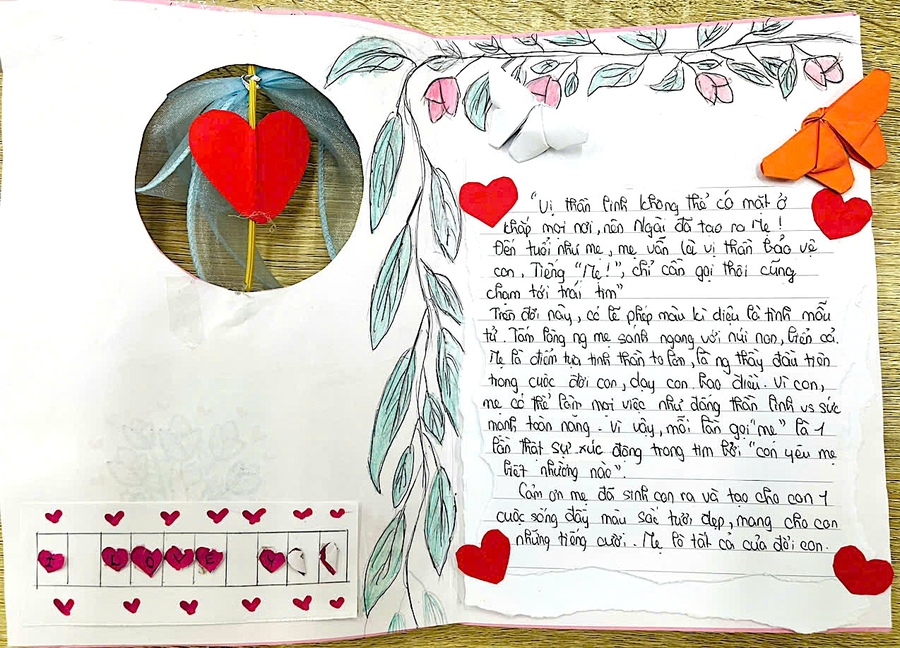 "Vị thần linh không thể có mặt ở
khắp mọi nơi, nên Ngài đã tạo ra Mẹ!
Đến tuổi như mẹ, mẹ vẫn là vị thần bảo vệ
con. Tiếng "Mẹ!", chỉ cần gọi thôi cũng
chạm tới trái tim"
Trên đời này, có lẽ phép màu kì diệu là tình mẫu
tử. Tấm lòng ng mẹ sánh ngang với núi non, biển cả.
Mẹ là điểm tựa tinh thần to lớn, là ng thầy đầu tiên
trong cuộc đời con, dạy con bao điều. Vì con,
mẹ có thể làm mọi việc như đấng thần linh vs sức
mạnh toàn năng. Vì vậy, mỗi lần gọi "mẹ" là 1
lần thật sự xúc động trong tim bởi "con yêu mẹ
biết nhường nào".
Cảm ơn mẹ đã sinh con ra và tạo cho con 1
cuộc sống đầy màu sắc tươi đẹp, mang cho con
những tiếng cười. Mẹ là tất cả của đời con.
I LOVE